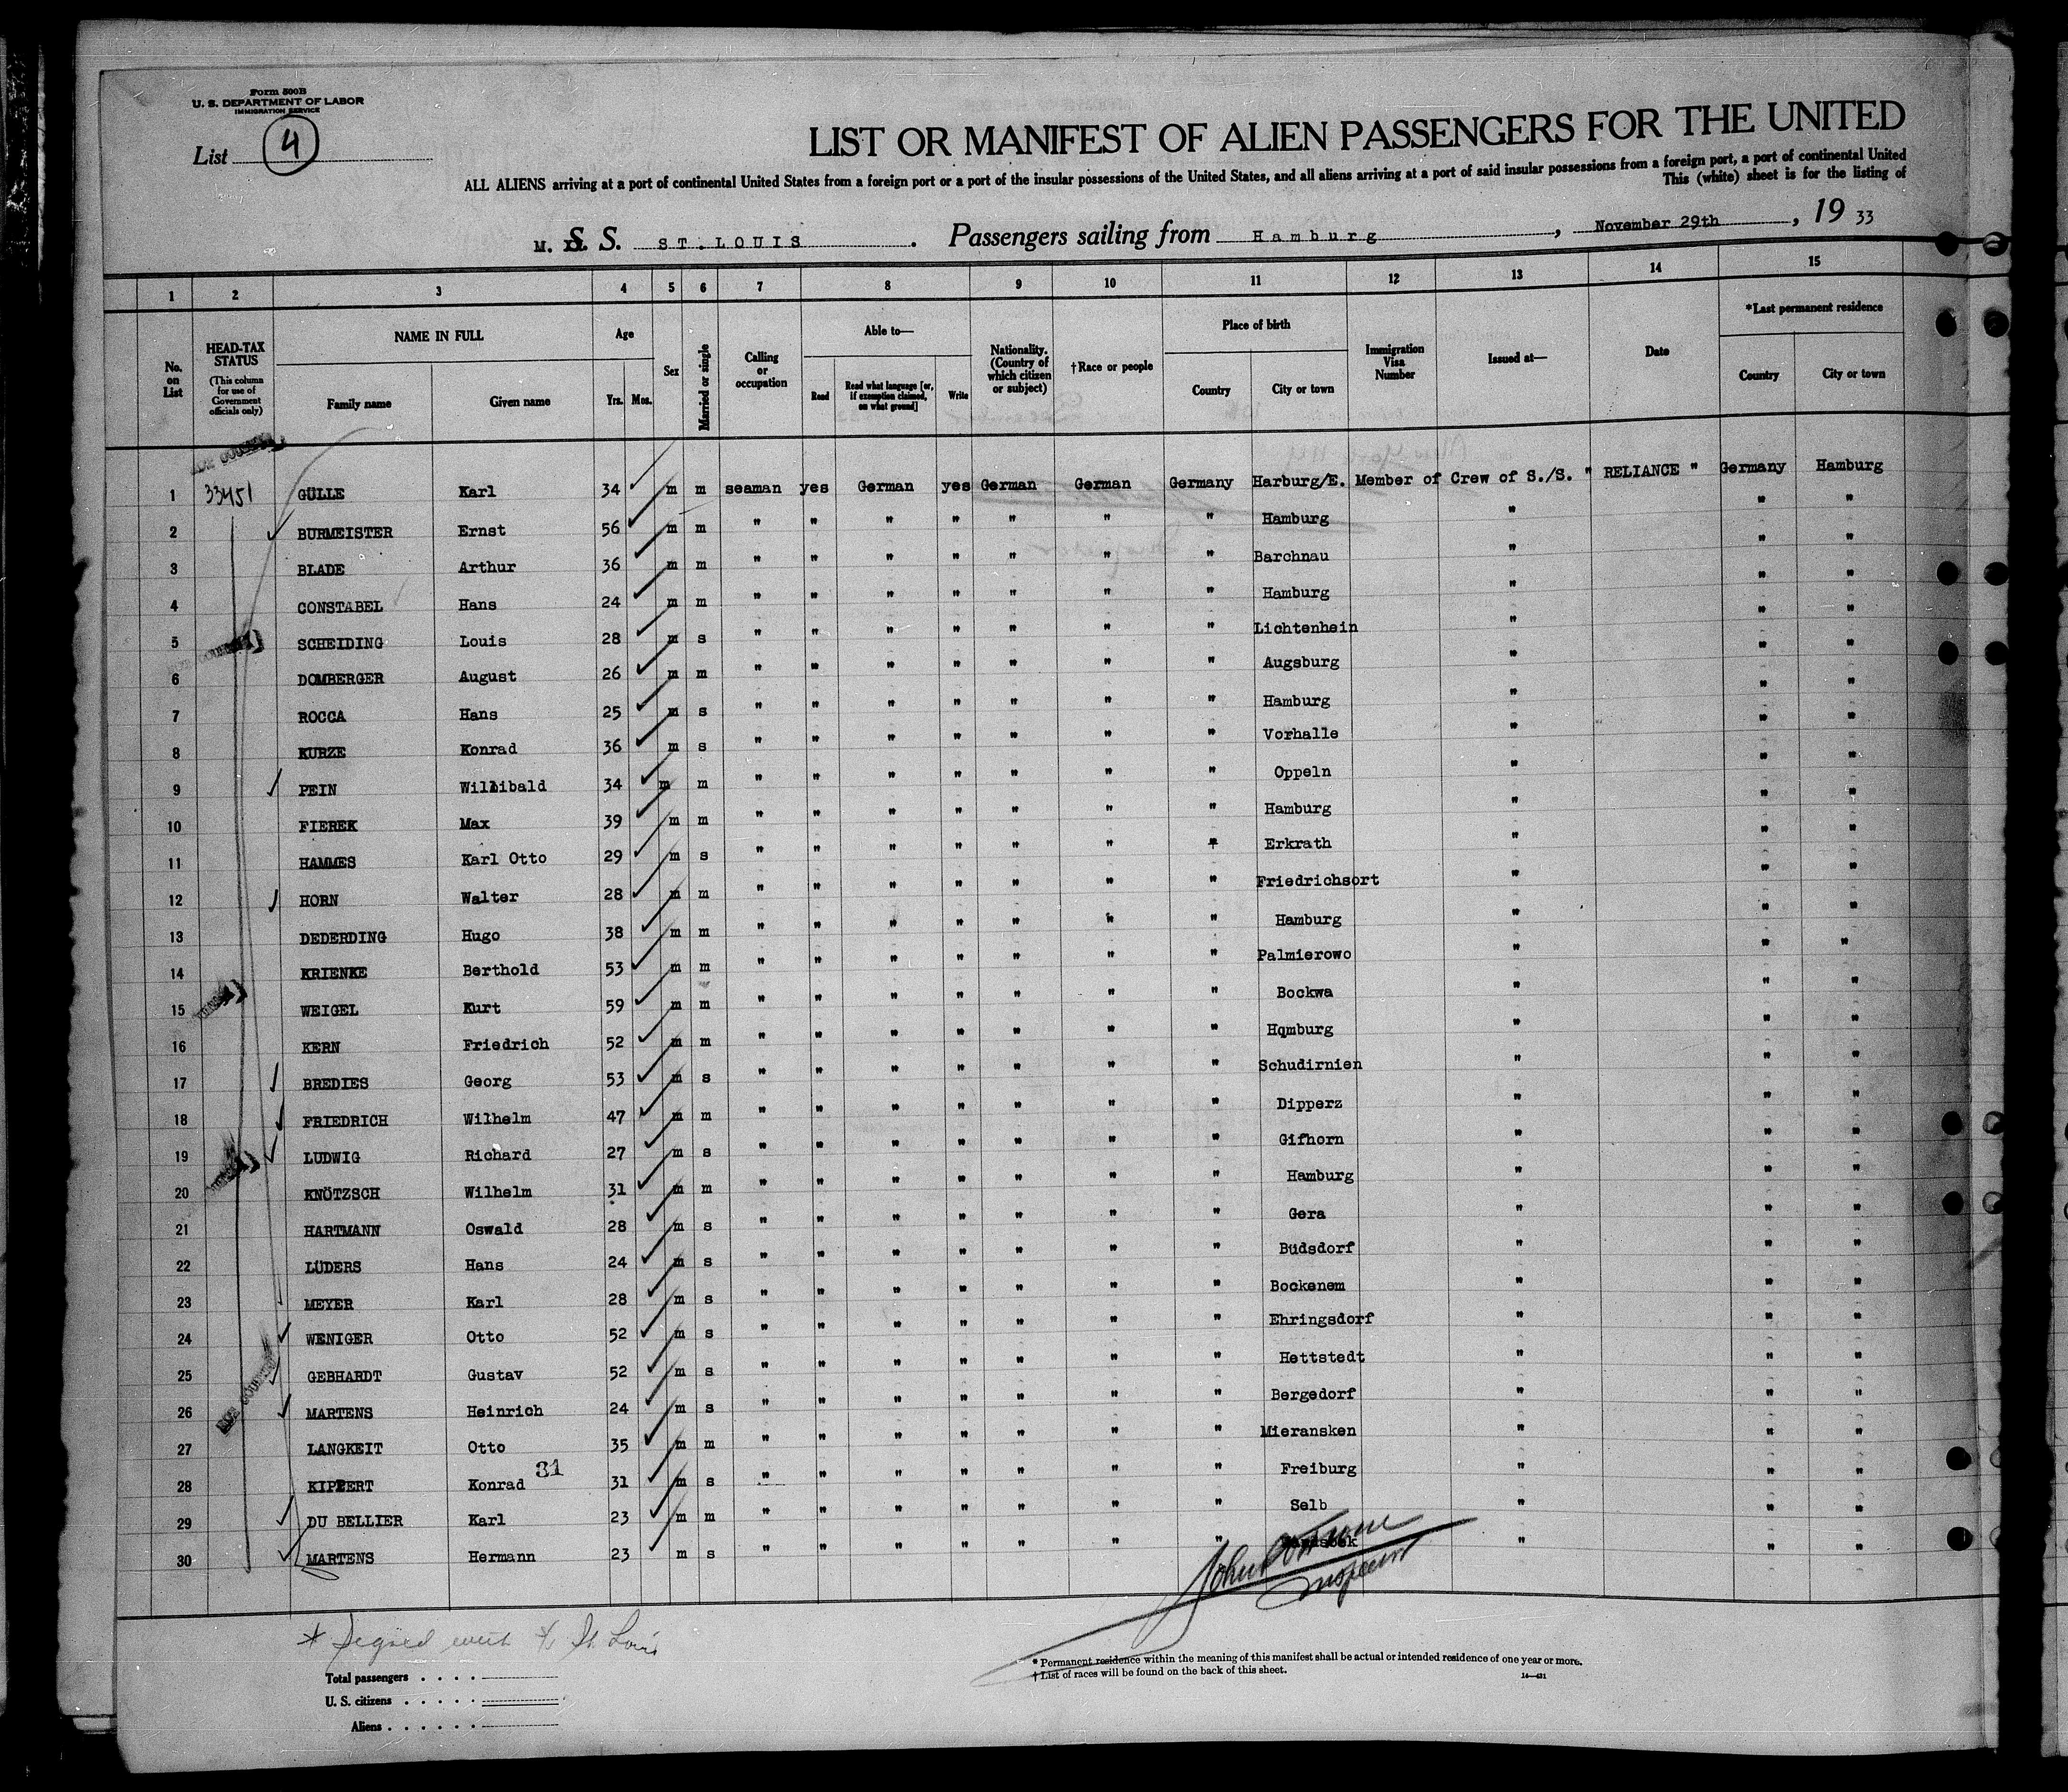 Form 500B
U. S. DEPARTMENT OF LABOR
IMMIGRATION SERVICE
List 4
LIST OR MANIFEST OF ALIEN PASSENGERS FOR THE UNITED
ALL ALIENS arriving at a port of continental United States from a foreign port or a port of the insular possessions of the United States, and all aliens arriving at a port of said insular possessions from a foreign port, a port of continental United
This (white) sheet is for the listing of
M. S. S. ST.LOUIS . Passengers sailing from Hamburg , November 29th , 19 33
1 2 3 4 5 6 7 8 9 10 11 12 13 14 15
No. on List
HEAD-TAX STATUS (This column for use of Government officials only)
NAME IN FULL
Family name Given name
Age
Yrs. Mos.
Sex
Married or single
Calling or occupation
Able to—
Read Read what language [or, if exemption claimed, on what ground] Write
Nationality. (Country of which citizen or subject)
†Race or people
Place of birth
Country City or town
Immigration Visa Number
Issued at—
Date
*Last permanent residence
Country City or town
1 33451 GÜLLE Karl 34 m m seaman yes German yes German German Germany Harburg/E. Member of Crew of S./S. " RELIANCE " Germany Hamburg
2 BURMEISTER Ernst 56 m m " " " " " " " Hamburg " " "
3 BLADE Arthur 36 m m " " " " " " " Barchnau " " "
4 CONSTABEL Hans 24 m m " " " " " " " Hamburg " " "
5 SCHEIDING Louis 28 m s " " " " " " " Lichtenhein " " "
6 DOMBERGER August 26 m m " " " " " " " Augsburg " " "
7 ROCCA Hans 25 m s " " " " " " " Hamburg " " "
8 KURZE Konrad 36 m s " " " " " " " Vorhalle " " "
9 PEIN Willibald 34 m m " " " " " " " Oppeln " " "
10 FIEREK Max 39 m m " " " " " " " Hamburg " " "
11 HAMMES Karl Otto 29 m s " " " " " " " Erkrath " " "
12 HORN Walter 28 m m " " " " " " " Friedrichsort " " "
13 DEDERDING Hugo 38 m m " " " " " " " Hamburg " " "
14 KRIENKE Berthold 53 m m " " " " " " " Palmierowo " " "
15 WEIGEL Kurt 59 m m " " " " " " " Bockwa " " "
16 KERN Friedrich 52 m m " " " " " " " Hqmburg " " "
17 BREDIES Georg 53 m s " " " " " " " Schudirnien " " "
18 FRIEDRICH Wilhelm 47 m m " " " " " " " Dipperz " " "
19 LUDWIG Richard 27 m s " " " " " " " Gifhorn " " "
20 KNÖTZSCH Wilhelm 31 m m " " " " " " " Hamburg " " "
21 HARTMANN Oswald 28 m s " " " " " " " Gera " " "
22 LÜDERS Hans 24 m s " " " " " " " Büdsdorf " " "
23 MEYER Karl 28 m s " " " " " " " Bockenem " " "
24 WENIGER Otto 52 m s " " " " " " " Ehringsdorf " " "
25 GEBHARDT Gustav 52 m s " " " " " " " Hettstedt " " "
26 MARTENS Heinrich 24 m s " " " " " " " Bergedorf " " "
27 LANGKEIT Otto 35 m m " " " " " " " Mieransken " " "
28 KIPPERT Konrad 31 31 m s " " " " " " " Freiburg " " "
29 DU BELLIER Karl 23 m m " " " " " " " Selb " " "
30 MARTENS Hermann 23 m s " " " " " " " " " "
John
Inspector
* Signed with St. Louis
Total passengers . . . .
U. S. citizens . . . . .
Aliens . . . . . .
* Permanent residence within the meaning of this manifest shall be actual or intended residence of one year or more.
† List of races will be found on the back of this sheet.
14—431